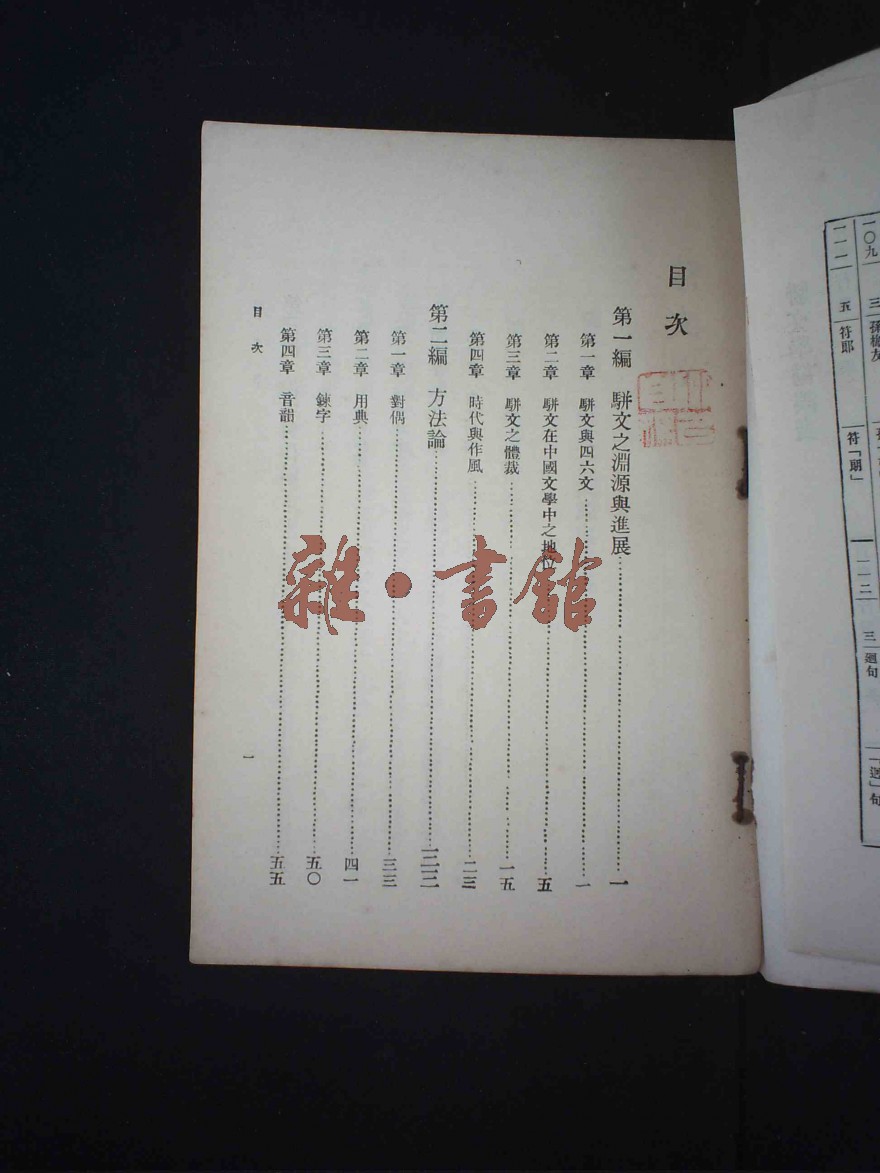 一〇九 三 孫梅友
一一一 五 符郎 符「朗」 一一三 三 迴句 「送」句
目次
第一編 駢文之淵源與進展……一
第一章 駢文與四六文……一
第二章 駢文在中國文學中之地位……五
第三章 駢文之體裁……一五
第四章 時代與作風……二三
第二編 方法論……三三
第一章 對偶……三三
第二章 用典……四一
第三章 鍊字……五〇
第四章 音韻……五五
目次 一
雜・書館